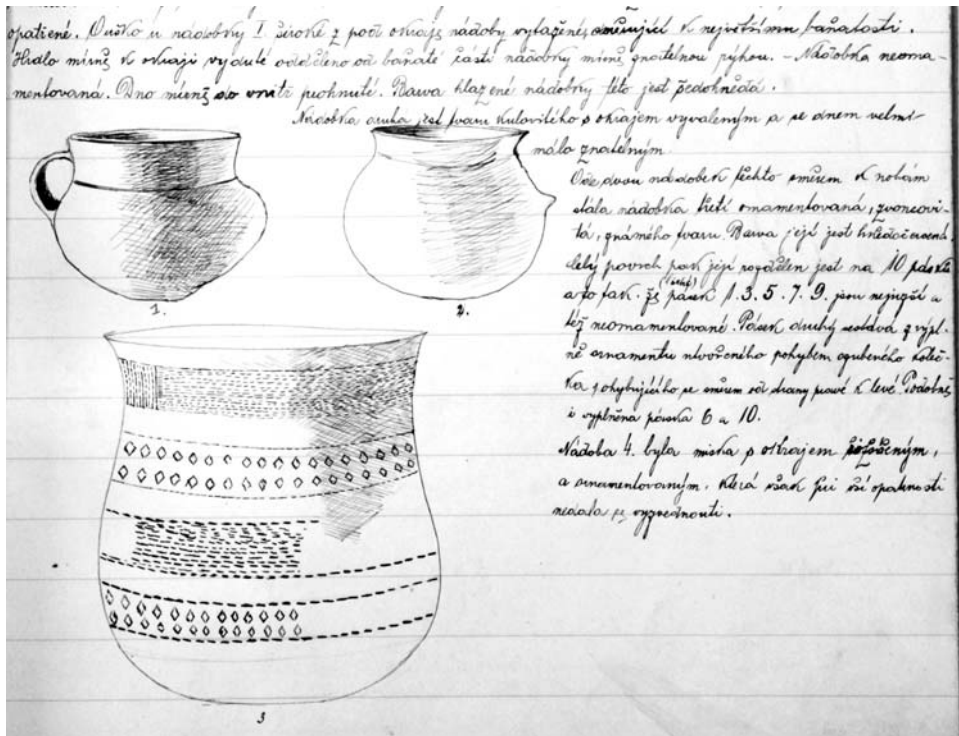 opatřené. Ouško u nádobky I. široké z pod okraje nádoby vytažené, směřující k největšímu baňatosti.
Hrdlo mírně k okraji vyduté odděleno od baňaté části nádobky mírně znatelnou rýhou. – Nádobka neorna-
mentovaná. Dno mírně do vnitř prohnuté. Barva hlazené nádobky této jest šedohnědá.
Nádobka druhá jest tvaru kulovitého s okrajem vyvaleným a se dnem velmi
málo znatelným.
Ode dvou nádobek těchto směrem k nohám
stála nádobka třetí ornamentovaná, zvoncovi-
tá, známého tvaru. Barva její jest hnědočervená
celý povrch pak její rozdělen jest na 10 pásků
a to tak, že pásek 1. 3. 5. 7. 9. jsou nejužší a
též neornamentované. Pásek druhý sestává z výpl-
ně ornamentu utvořeného pohybem ozubeného koleč-
ka pohybujícího se směrem od strany pravé k levé. Podobně
i vyplněna páska 6 a 10.
Nádoba 4. byla miska s okrajem
a ornamentovaným, která však při vší opatrnosti
nedala se vyzvednouti.
1.
2.
3